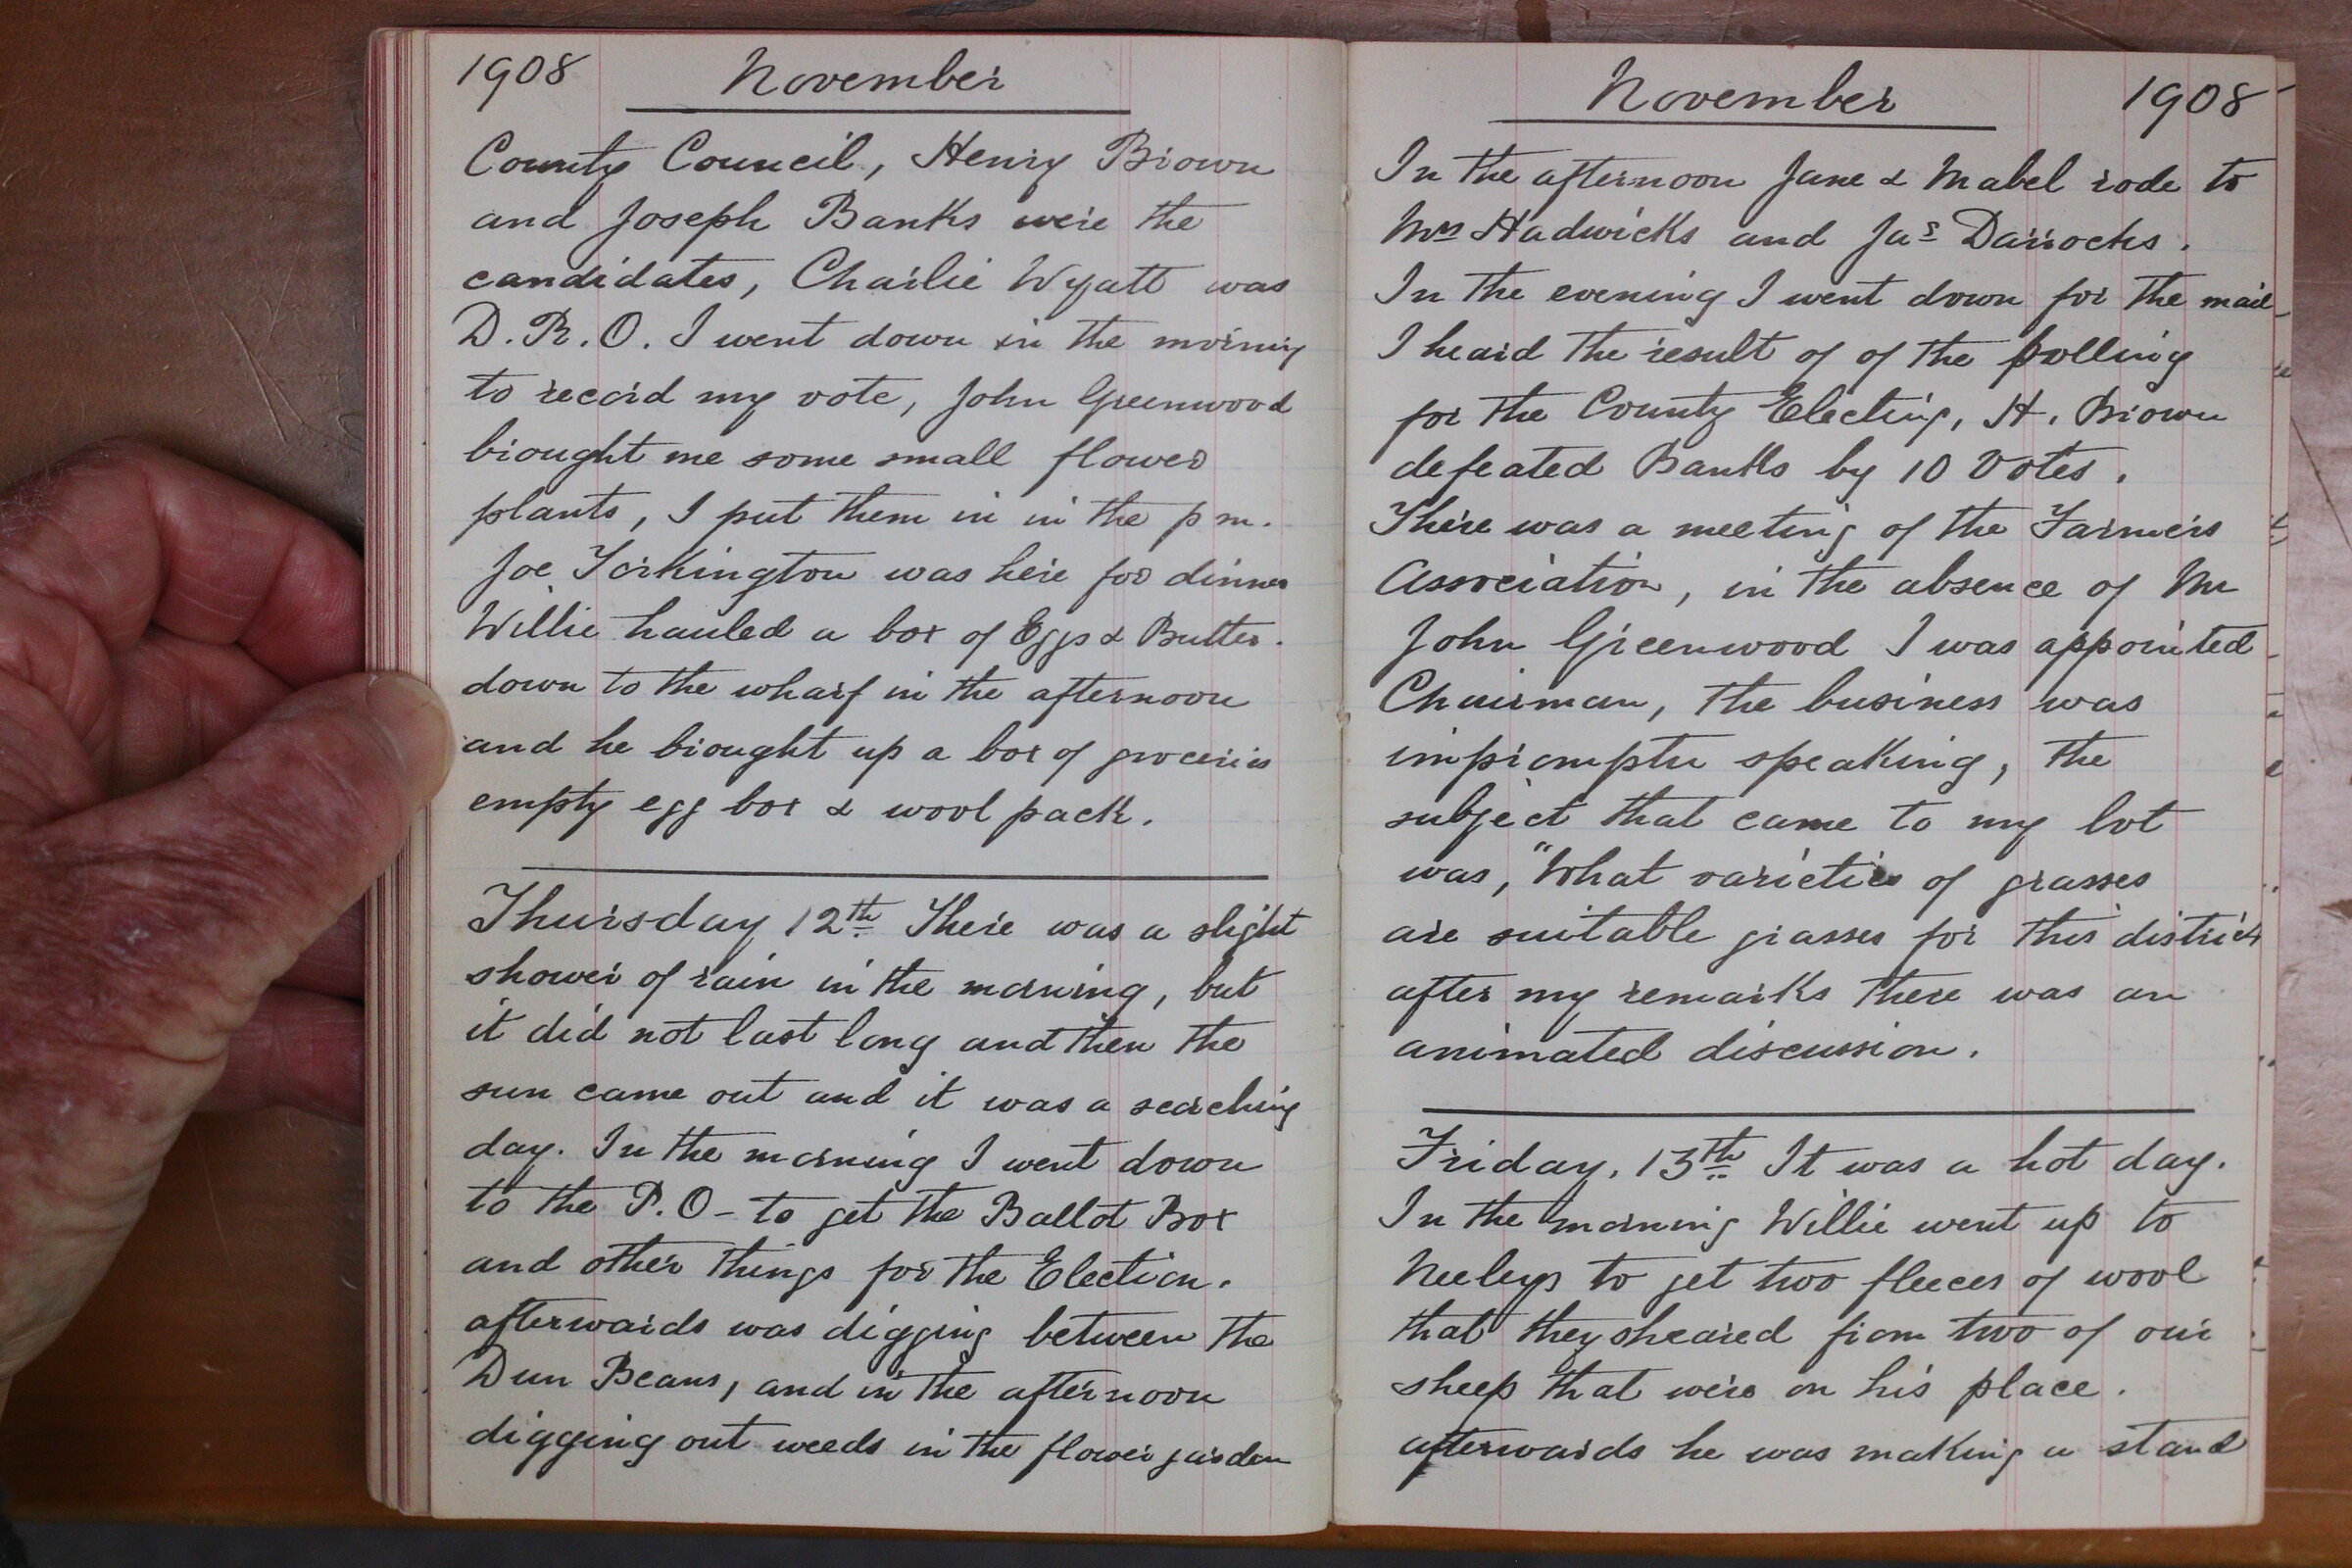 1908 November
County Council, Henry Brown
and Joseph Banks were the
candidates, Charlie Wyatt was
D.R.O. I went down in the morning
to record my vote, John Greenwood
brought me some small flower
plants, I put them in in the pm.
Joe Torkington was here for dinner
Willie hauled a box of Eggs & Butter.
down to the wharf in the afternoon
and he brought up a box of groceries
empty egg box & wool pack.
Thursday 12th There was a slight
shower of rain in the morning, but
it did not last long and then the
sun came out and it was a scorching
day. In the morning I went down
to the P.O- to get the Ballot Box
and other things for the Election.
afterwards was digging between the
Dun Beans, and in the afternoon
digging out weeds in the flower garden
November 1908
In the afternoon Jane & Mabel rode to
Mrs Hadwicks and Jas Darrochs.
In the evening I went down for the mail
I heard the result of of the polling
for the County Electing, H. Brown
defeated Banks by 10 Votes.
There was a meeting of the Farmers
Association, in the absence of Mr
John Greenwood I was appointed
Chairman, the business was
impromptu speaking, the
subject that came to my lot
was, "What varieties of grasses
are suitable grasses for this district
after my remarks there was an
animated discussion.
Friday. 13th It was a hot day.
In the morning Willie went up to
Neeleys to get two fleeces of wool
that they sheared from two of our
sheep that were on his place.
afterwards he was making a stand